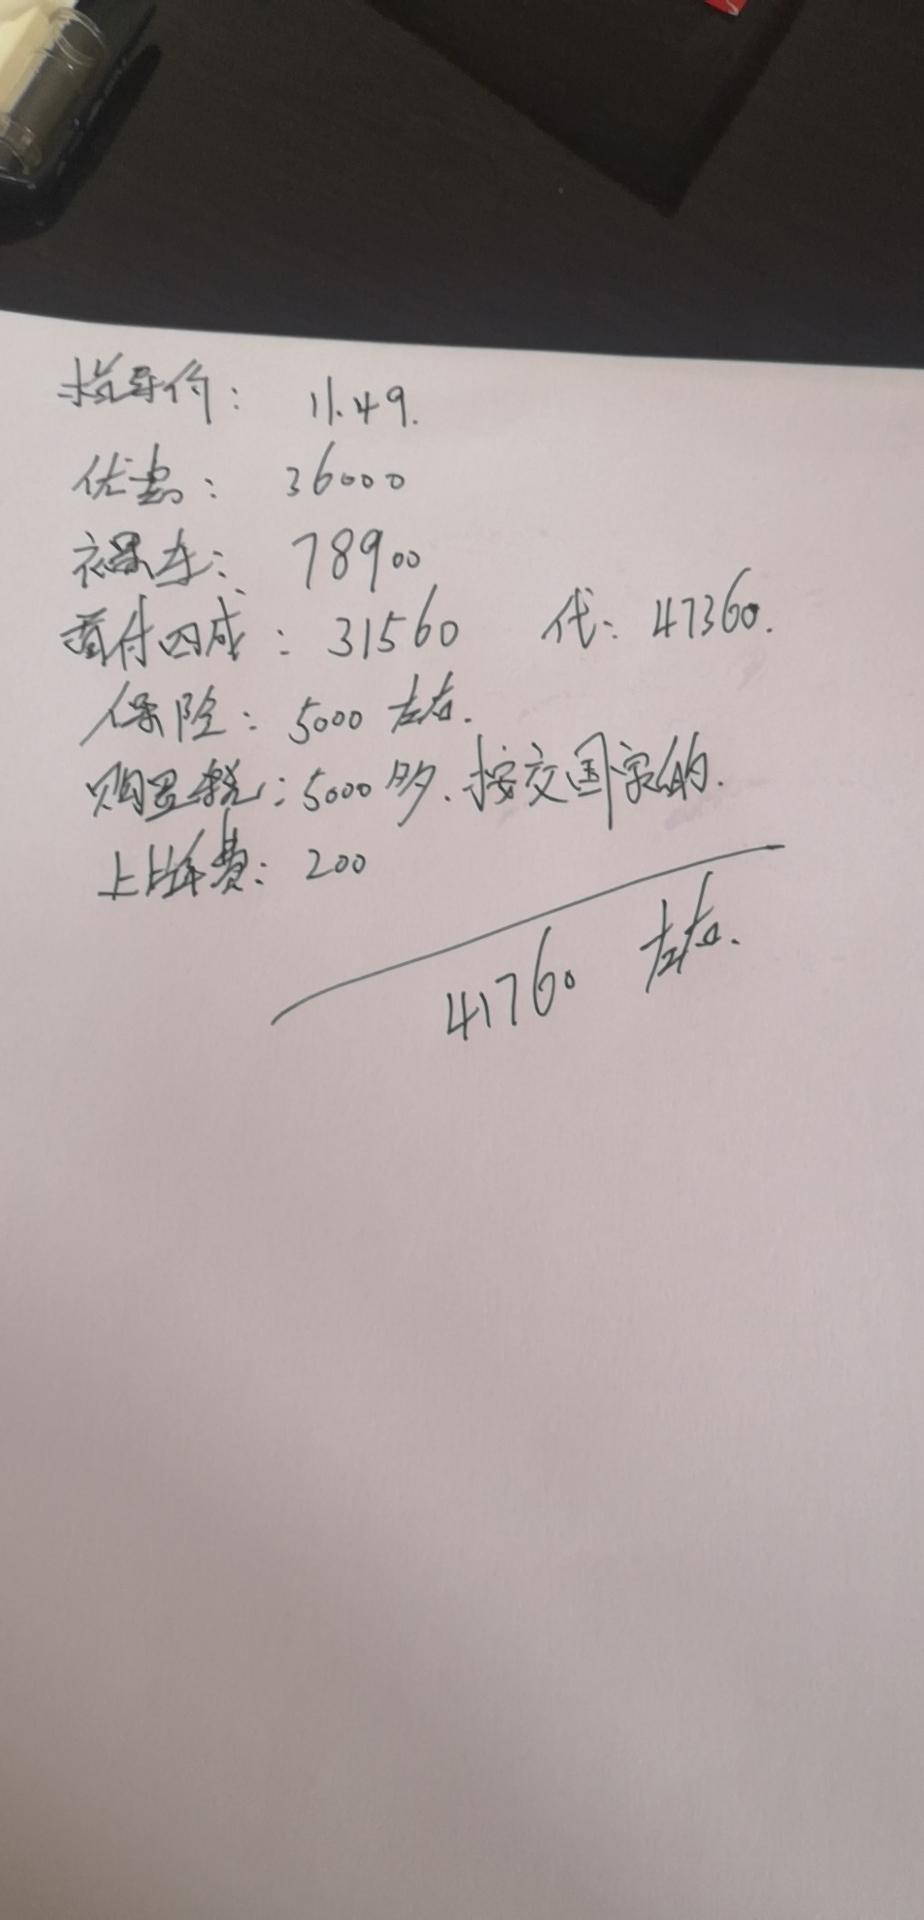 指导价: 11.49.
优惠: 36000
裸车: 78900
首付四成: 31560 代: 47360.
保险: 5000 左右.
购置税: 5000多. 按交国家的.
上牌费: 200
41760 左右.